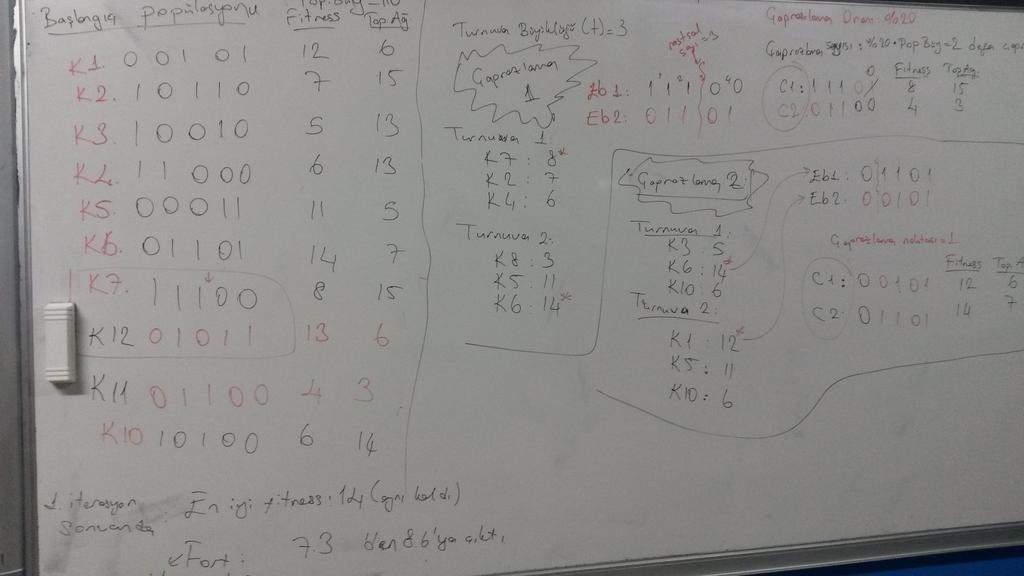 Başlangıç popülasyonu Fitness Top.Ağ.
K1. 0 0 1 0 1 12 6
K2. 1 0 1 1 0 7 15
K3 1 0 0 1 0 5 13
K4 1 1 0 0 0 6 13
K5. 0 0 0 1 1 11 5
K6. 0 1 1 0 1 14 7
K7. 1 1 1 0 0 8 15
K12 0 1 0 1 1 13 6
K11 0 1 1 0 0 4 3
K10 1 0 1 0 0 6 14
1. iterasyon sonunda
En iyi fitness: 14 (aynı kaldı)
Fort: 7.3 'den 8.6'ya çıktı
Turnuva Büyüklüğü (t)=3
Çaprazlama 1
Turnuva 1:
K7 : 8*
K2 : 7
K4 : 6
Turnuva 2:
K8 : 3
K5 : 11
K6 : 14*
rastsal sayı=3
Eb1: 1 1 1 0 0
Eb2: 0 1 1 0 1
Çaprazlama Oranı: %20
Çaprazlama sayısı: %20*Pop Büy=2
Fitness Top.Ağ.
C1: 1 1 1 0 0 8 15
C2: 0 1 1 0 0 4 3
Çaprazlama 2:
Turnuva 1:
K3 : 5
K6 : 14*
K10 : 6
Turnuva 2:
K1 : 12*
K5 : 11
K10 : 6
Eb1: 0 1 1 0 1
Eb2: 0 0 1 0 1
Çaprazlama noktası=1
Fitness Top.A
C1: 0 0 1 0 1 12 6
C2: 0 1 1 0 1 14 7